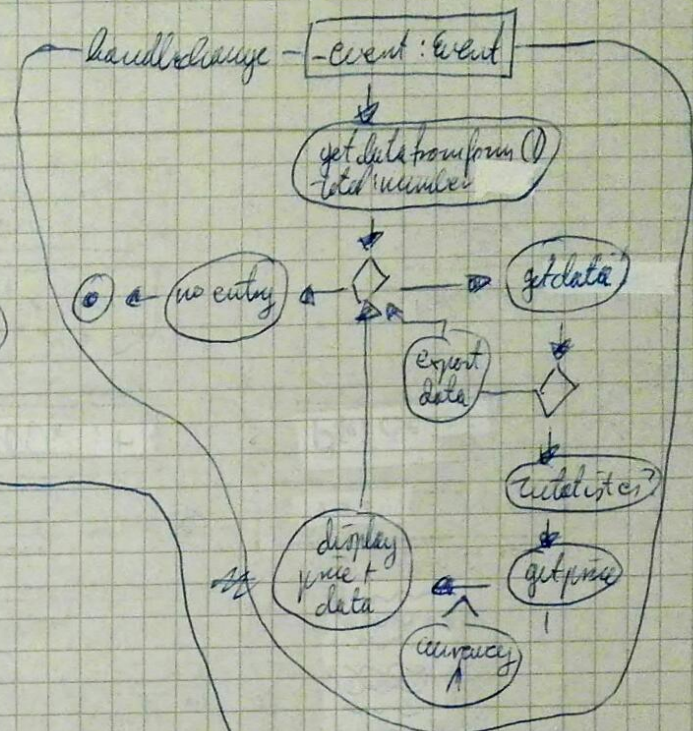 handlechange - -event : Event
getdatafromform ()
-total : number
no entry
getdata
export
data
getprice
display
price +
data
currency